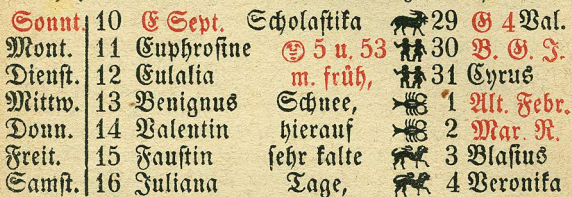 Sonnt. 10 E Sept. Scholastika 29 G 4 Val.
Mont. 11 Euphrosine 5 u. 53 30 B. G. J.
Dienst. 12 Eulalia m. früh, 31 Cyrus
Mittw. 13 Benignus Schnee, 1 Alt. Febr.
Donn. 14 Valentin hierauf 2 Mar. R.
Freit. 15 Faustin sehr kalte 3 Blasius
Samst. 16 Juliana Tage, 4 Veronika